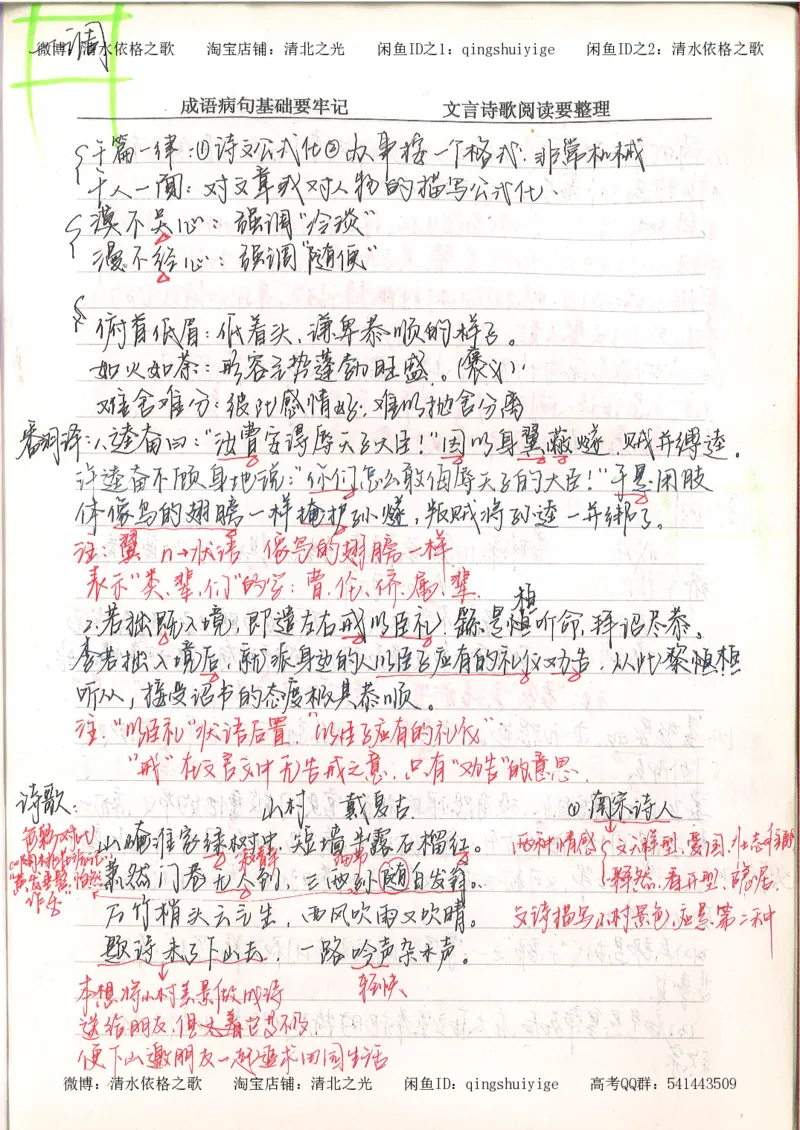 微博：清水依格之歌 淘宝店铺：清北之光 闲鱼ID之1：qingshuiyige 闲鱼ID之2：清水依格之歌
一周
成语病句基础要牢记 文言诗歌阅读要整理
千篇一律：①诗文公式化②办事按一个格式，非常机械
千人一面：对文章或对人物的描写公式化
漠不关心：强调“冷淡”
漫不经心：强调“随便”
俯首低眉：低着头，谦卑恭顺的样子。
如火如荼：形容气势蓬勃旺盛。（褒义）
难舍难分：彼此感情好，难以抛舍分离
1.逵奋曰：“汝曹安得辱天子大臣！”因以身翼蔽燧，贼并缚逵。
许逵奋不顾身地说：“你们怎么敢侮辱天子的大臣！”于是用肢
体像鸟的翅膀一样掩护孙燧，叛贼将孙逵一并绑了。
注：翼 n→状语 像鸟的翅膀一样
表示“类、辈、们”的字：曹、伦、侪、属、辈.
桓
2.若拙既入境，即遣左右戒以臣礼，繇是桓听命，拜诏尽恭。
李若拙入境后，就派身边的人以臣子应有的礼仪劝告，从此黎桓
听从，接受诏书的态度极其恭顺。
注：“以臣礼”状语后置，“以臣子应有的礼仪”
“戒”在文言文中无告戒之意，只有“劝告”的意思.
诗歌：
山村 戴复古
①南宋诗人
山崦谁家绿树中，短墙半露石榴红。
萧然门巷无人到，三两孙随白发翁。
石竹梢头云气生，西风吹雨又吹晴。
题诗未了下山去，一路吟声杂水声。
作乐
两种情感
文天祥型、爱国
释然、看开型
文诗描写山村景色，应是第二种
轻快
本想将山村美景做成诗
便下山邀朋友一起追求田园生活
微博：清水依格之歌 淘宝店铺：清北之光 闲鱼ID：qingshuiyige 高考QQ群：541443509